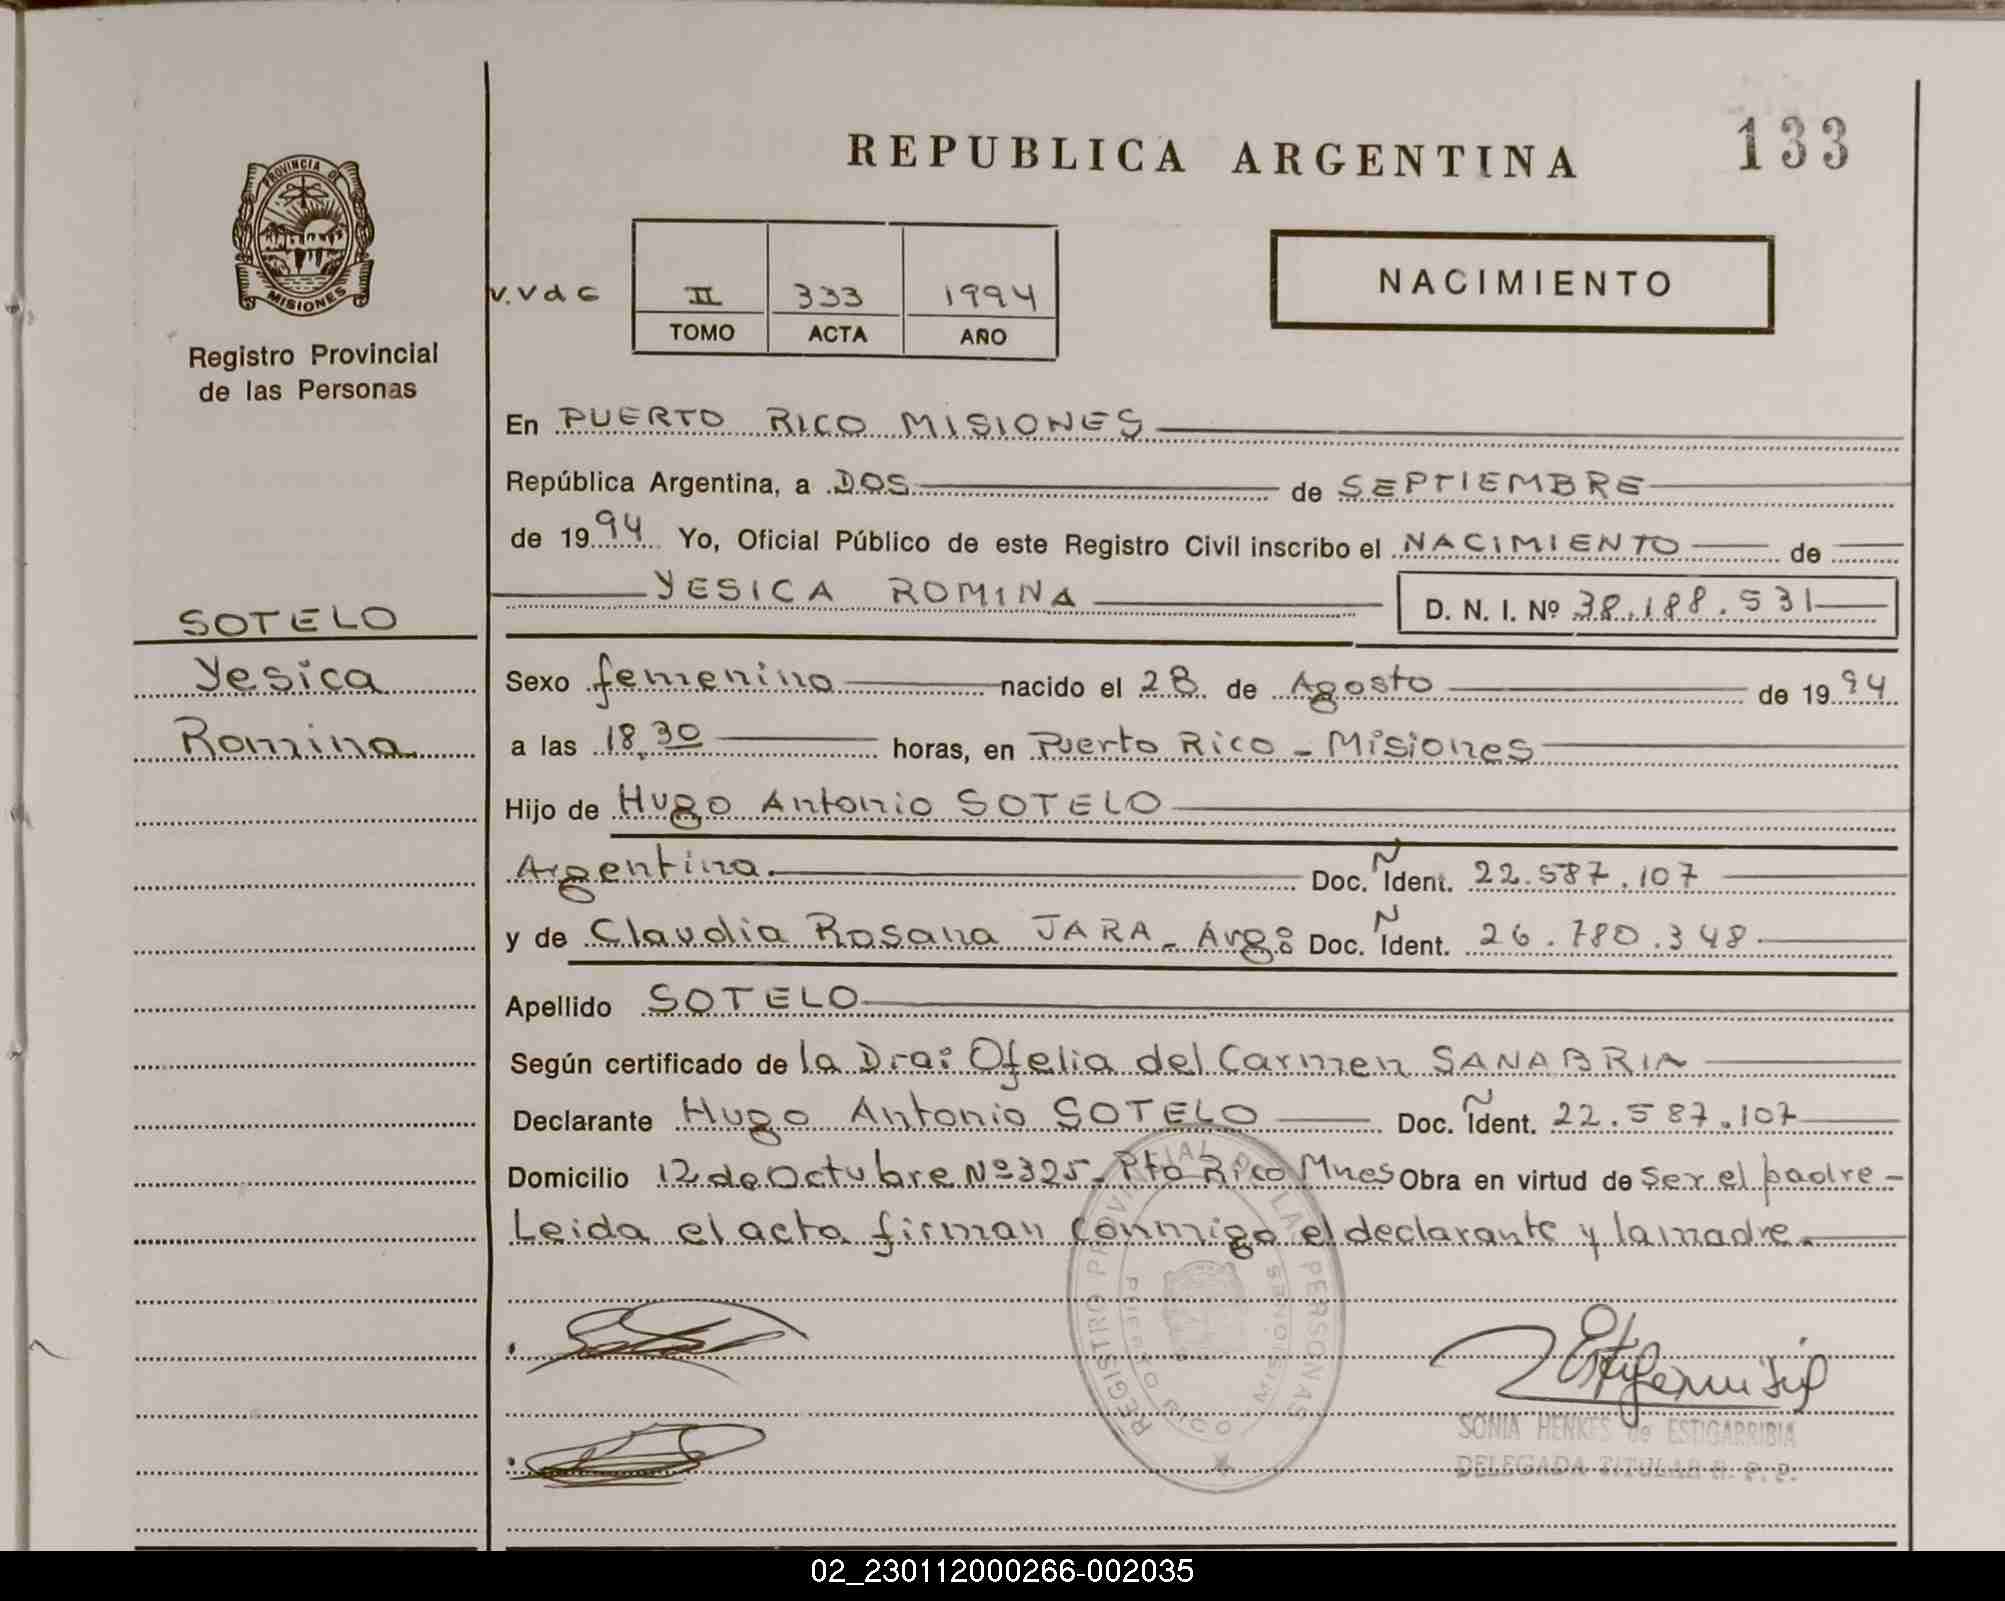 REPUBLICA ARGENTINA
133
PROVINCIA DE
MISIONES
Registro Provincial
de las Personas
V.V d C
II 333 1994
TOMO ACTA AÑO
NACIMIENTO
En PUERTO RICO MISIONES
República Argentina, a DOS de SEPTIEMBRE
de 1994 Yo, Oficial Público de este Registro Civil inscribo el NACIMIENTO de
YESICA ROMINA D. N. I. Nº 38.188.531
SOTELO
Yesica
Romina
Sexo femenino nacido el 28 de Agosto de 1994
a las 18,30 horas, en Puerto Rico - Misiones
Hijo de Hugo Antonio SOTELO
Argentina. Doc. Ident. 22.587.107
y de Claudia Rosana JARA - Arg: Doc. Ident. 26.780.348
Apellido SOTELO
Según certificado de la Dra: Ofelia del Carmen SANABRIA
Declarante Hugo Antonio SOTELO Doc. Ident. 22.587.107
Domicilio 12 de Octubre Nº 325 - Pto Rico Mnes Obra en virtud de Ser el padre -
Leida el acta firman conmigo el declarante y la madre.
REGISTRO PROVINCIAL DE LAS PERSONAS
PUERTO RICO MISIONES
SONIA HENKES de ESTIGARRIBIA
DELEGADA TITULAR R. P. P.
02_230112000266-002035